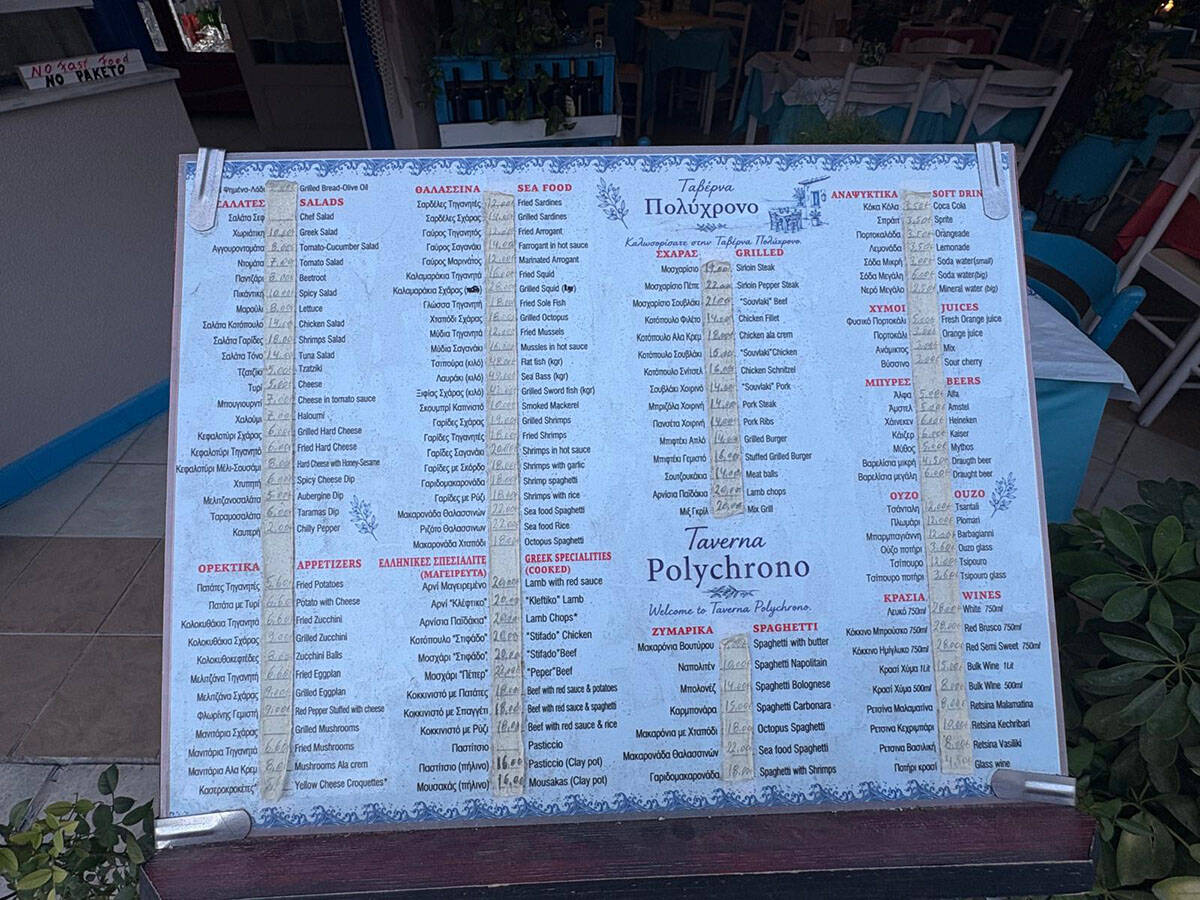 No fast food
NO PAKETO
Ψημένο-Λάδι Grilled Bread-Olive Oil
ΣΑΛΑΤΕΣ SALADS
Σαλάτα Σεφ Chef Salad
Χωριάτικη 10.00 Greek Salad
Αγγουροντομάτα 8.00 Tomato-Cucumber Salad
Ντομάτα 7.00 Tomato Salad
Παντζάρι Beetroot
Πικάντικη 10.00 Spicy Salad
Μαρούλι 8.00 Lettuce
Σαλάτα Κοτόπουλο 14.00 Chicken Salad
Σαλάτα Γαρίδες 18.00 Shrimps Salad
Σαλάτα Τόνο 14.00 Tuna Salad
Τζατζίκι 5.00 Tzatziki
Τυρί 5.00 Cheese
Μπουγιουρντί 7.00 Cheese in tomato sauce
Χαλούμι 7.00 Haloumi
Κεφαλοτύρι Σχάρας 6.00 Grilled Hard Cheese
Κεφαλοτύρι Τηγανητό 6.00 Fried Hard Cheese
Κεφαλοτύρι Μέλι-Σουσάμι 8.00 Hard Cheese with Honey-Sesame
Χτυπητή 6.00 Spicy Cheese Dip
Μελιτζανοσαλάτα 5.00 Aubergine Dip
Ταραμοσαλάτα 6.00 Taramas Dip
Καυτερή 2.00 Chilly Pepper
ΟΡΕΚΤΙΚΑ APPETIZERS
Πατάτες Τηγανητές 5.60 Fried Potatoes
Πατάτα με Τυρί 6.60 Potato with Cheese
Κολοκυθάκια Τηγανητά 6.60 Fried Zucchini
Κολοκυθάκια Σχάρας 9.00 Grilled Zucchini
Κολοκυθοκεφτέδες Zucchini Balls
Μελιτζάνα Τηγανητή 6.60 Fried Eggplan
Μελιτζάνα Σχάρας 9.00 Grilled Eggplan
Φλωρίνης Γεμιστή 9.00 Red Pepper Stuffed with cheese
Μανιτάρια Σχάρας Grilled Mushrooms
Μανιτάρια Τηγανητά 6.60 Fried Mushrooms
Μανιτάρια Αλα Κρεμ 8.00 Mushrooms Ala crem
Καστεροκροκέτες* Yellow Cheese Croquettes*
ΘΑΛΑΣΣΙΝΑ SEA FOOD
Σαρδέλες Τηγανητές 12.00 Fried Sardines
Σαρδέλες Σχάρας 14.00 Grilled Sardines
Γαύρος Τηγανητός 12.00 Fried Arrogant
Γαύρος Σαγανάκι 14.00 Farrogant in hot sauce
Γαύρος Μαρινάτος 12.00 Marinated Arrogant
Καλαμαράκια Τηγανητά 16.00 Fried Squid
Καλαμαράκια Σχάρας 28.00 Grilled Squid
Γλώσσα Τηγανητή 18.00 Fried Sole Fish
Χταπόδι Σχάρας 18.00 Grilled Octopus
Μύδια Τηγανητά 12.00 Fried Mussels
Μύδια Σαγανάκι 16.00 Mussles in hot sauce
Τσιπούρα (κιλό) 48.00 Flat fish (kgr)
Λαυράκι (κιλό) Sea Bass (kgr)
Ξιφίας Σχάρας (κιλό) Grilled Sword fish (kgr)
Σκουμπρί Καπνιστό 10.00 Smoked Mackerel
Γαρίδες Σχάρας 19.00 Grilled Shrimps
Γαρίδες Τηγανητές 18.00 Fried Shrimps
Γαρίδες Σαγανάκι 20.00 Shrimps in hot sauce
Γαρίδες με Σκόρδο 18.00 Shrimps with garlic
Γαριδομακαρονάδα 18.00 Shrimp spaghetti
Γαρίδες με Ρύζι 18.00 Shrimps with rice
Μακαρονάδα Θαλασσινών 22.00 Sea food Spaghetti
Ριζότο Θαλασσινών 22.00 Sea food Rice
Μακαρονάδα Χταπόδι 18.00 Octopus Spaghetti
ΕΛΛΗΝΙΚΕΣ ΣΠΕΣΙΑΛΙΤΕ GREEK SPECIALITIES
(ΜΑΓΕΙΡΕΥΤΑ) (COOKED)
Αρνί Μαγειρεμένο 20.00 Lamb with red sauce
Αρνί "Κλέφτικο" 20.00 "Kleftiko" Lamb
Αρνίσια Παϊδάκια* 20.00 Lamb Chops*
Κοτόπουλο "Στιφάδο" 20.00 "Stifado" Chicken
Μοσχάρι "Στιφάδο" 20.00 "Stifado"Beef
Μοσχάρι "Πέπερ" 22.00 "Peper"Beef
Κοκκινιστό με Πατάτες 18.00 Beef with red sauce & potatoes
Κοκκινιστό με Σπαγγέτι 18.00 Beef with red sauce & spaghetti
Κοκκινιστό με Ρύζι 18.00 Beef with red sauce & rice
Παστίτσιο Pasticcio
Παστίτσιο (πήλινο) 16.00 Pasticcio (Clay pot)
Μουσακάς (πήλινο) 16.00 Mousakas (Clay pot)
Ταβέρνα
Πολύχρονο
Καλωσορίσατε στην Ταβέρνα Πολύχρονο.
ΣΧΑΡΑΣ GRILLED
Μοσχαρίσιο 19.00 Sirloin Steak
Μοσχαρίσιο Πέπε 22.00 Sirloin Pepper Steak
Μοσχαρίσιο Σουβλάκι 21.00 "Souvlaki" Beef
Κοτόπουλο Φιλέτο 14.00 Chicken Fillet
Κοτόπουλο Αλα Κρεμ 18.00 Chicken ala crem
Κοτόπουλο Σουβλάκι 15.00 "Souvlaki"Chicken
Κοτόπουλο Σνίτσελ 16.00 Chicken Schnitzel
Σουβλάκι Χοιρινό 14.00 "Souvlaki" Pork
Μπριζόλα Χοιρινή 14.00 Pork Steak
Πανσέτα Χοιρινή 14.00 Pork Ribs
Μπιφτέκι Απλό 14.00 Grilled Burger
Μπιφτέκι Γεμιστό 16.00 Stuffed Grilled Burger
Σουτζουκάκια 14.00 Meat balls
Αρνίσια Παϊδάκια 20.00 Lamb chops
Μιξ Γκριλ 20.00 Mix Grill
Taverna
Polychrono
Welcome to Taverna Polychrono.
ΖΥΜΑΡΙΚΑ SPAGHETTI
Μακαρόνια Βουτύρου Spaghetti with butter
Ναπολιτέν 10.00 Spaghetti Napolitain
Μπολονέζ 14.00 Spaghetti Bolognese
Καρμπονάρα 15.00 Spaghetti Carbonara
Μακαρόνια με Χταπόδι 18.00 Octopus Spaghetti
Μακαρονάδα Θαλασσινών 22.00 Sea food Spaghetti
Γαριδομακαρονάδα 18.00 Spaghetti with Shrimps
ΑΝΑΨΥΚΤΙΚΑ SOFT DRIN
Κόκα Κόλα 3.50 Coca Cola
Σπράιτ 3.50 Sprite
Πορτοκαλάδα 3.50 Orangeade
Λεμονάδα 3.50 Lemonade
Σόδα Μικρή 3.00 Soda water(small)
Σόδα Μεγάλη 6.00 Soda water(big)
Νερό Μεγάλο 2.50 Mineral water (big)
ΧΥΜΟΙ JUICES
Φυσικό Πορτοκάλι Fresh Orange juice
Πορτοκάλι Orange juice
Ανάμικτος Mix
Βύσσινο Sour cherry
ΜΠΥΡΕΣ BEERS
Άλφα 5.00 Alfa
Άμστελ Amstel
Χάινεκεν 6.00 Heineken
Κάιζερ Kaiser
Μύθος 5.00 Mythos
Βαρελίσια μικρή 4.50 Draugth beer
Βαρελίσια μεγάλη 6.00 Draught beer
ΟΥΖΟ OUZO
Τσάνταλη 12.00 Tsantali
Πλωμάρι 12.00 Plomari
Μπαρμπαγιάννη 12.00 Barbagianni
Ούζο ποτήρι 3.60 Ouzo glass
Τσίπουρο 12.00 Tsipouro
Τσίπουρο ποτήρι 3.60 Tsipouro glass
ΚΡΑΣΙΑ WINES
Λευκό 750ml 28.00 White 750ml
Κόκκινο Μπρούσκο 750ml 28.00 Red Brusco 750ml
Κόκκινο Ημίγλυκο 750ml 28.00 Red Semi Sweet 750ml
Κρασί Χύμα 1Lit 15.00 Bulk Wine 1Lit
Κρασί Χύμα 500ml 8.00 Bulk Wine 500ml
Ρετσίνα Μαλαματίνα 8.00 Retsina Malamatina
Ρετσίνα Κεχριμπάρι 10.00 Retsina Kechribari
Ρετσίνα Βασιλική 8.00 Retsina Vasiliki
Ποτήρι κρασί 4.80 Glass wine